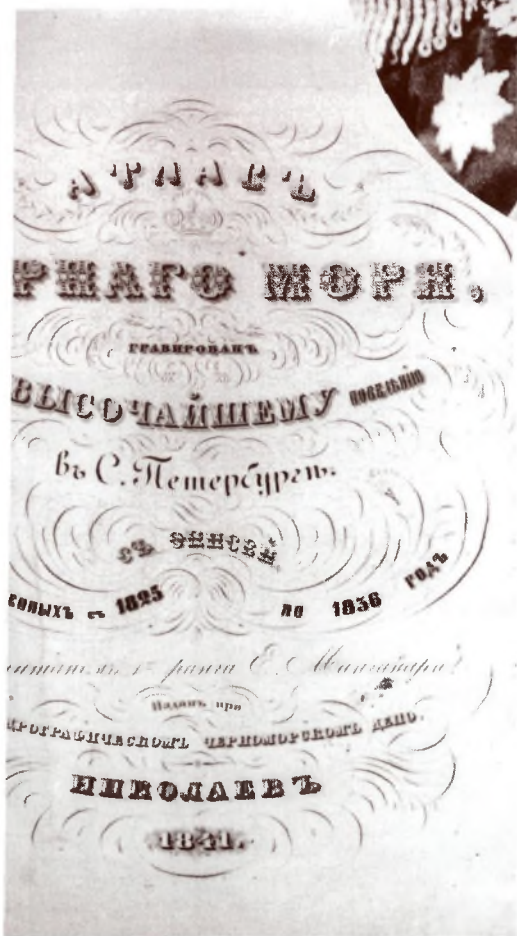 АТЛАСЪ
РНАГО МОРЯ,
ГРАВИРОВАНЪ
ВЫСОЧАЙШЕМУ ПОВЕЛѢНIЮ
въ С. Петербургѣ.
СЪ ОПИСЕЙ
съ 1825 по 1836 ГОДЪ
1го ранга Е. Манганари
Изданъ при
ДРОГРАФИЧЕСКОМЪ ЧЕРНОМОРСКОМЪ ДЕПО.
НИКОЛАЕВЪ
1841.